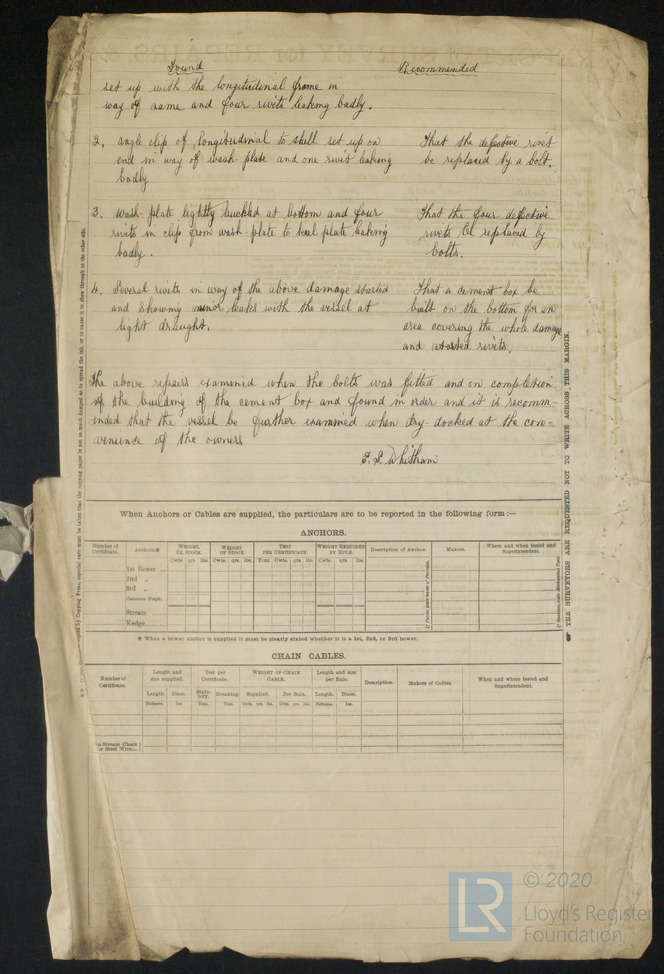 Found Recommended
set up with the longitudinal frame in
way of same and four rivets leaking badly.
2. angle clip of longitudinal to shell set up on That the defective rivet
end in way of wash plate and one rivet leaking be replaced by a bolt.
badly
3. Wash-plate lightly buckled at bottom and four That the four defective
rivets in clip from wash plate to keel plate leaking rivets be replaced by
badly. bolts.
4. Several rivets in way of the above damage started That a cement box be
and showing minor leaks with the vessel at built on the bottom for an
light draught. area covering the whole damage
and started rivets.
The above repairs examined when the bolts was fitted and on completion
of the building of the cement box and found in order and it is recomm-
ended that the vessel be further examined when dry-docked at the con-
venience of the owners
Whitham
When Anchors or Cables are supplied, the particulars are to be reported in the following form :—
ANCHORS.
Number of Certificate. Anchors.* WEIGHT, EX. STOCK. WEIGHT OF STOCK. TEST PER CERTIFICATE. WEIGHT REQUIRED BY RULE. Description of Anchor. Makers. Where and when tested and Superintendent.
Cwts. qrs. lbs. Cwts. qrs. lbs. Tons cwts. qrs. lbs. Cwts. qrs. lbs.
1st Bower ...
2nd „
3rd „
Collective Weight.
Stream
Kedge
* When a bower anchor is supplied it must be clearly stated whether it is a 1st, 2nd, or 3rd bower.
CHAIN CABLES.
Number of Certificate. Length and size supplied. Test per Certificate. WEIGHT OF CHAIN CABLE. Length and size per Rule. Description. Makers of Cables. When and where tested and Superintendent.
Length. Diam. Statutory. Breaking. Supplied. Per Rule. Length. Diam.
Fathoms. Ins. Tons. Tons. Cwts. qrs. lbs. Cwts. qrs. lbs. Fathoms. Ins.
Stream Chain
or Steel Wire...
THE SURVEYORS ARE REQUESTED NOT TO WRITE ACROSS THIS MARGIN.
LR
© 2020
Lloyd's Register
Foundation